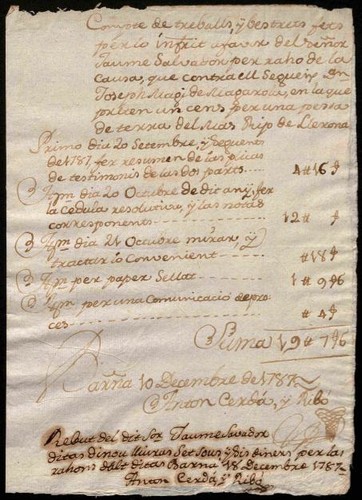 Compte de treballs, y bestretas fets
per lo infrit a favor del señor
Jaume Salvador per raho de la
causa, que contra ell segueix
Joseph Magi de Magarola, en la que
preten un cens per una pessa
de terra del Mas Prijo de Llerona
Primo dia 20 Setembre, y seguents
de 1787. fer resumen de las plicas
de testimonis de las dos parts 4 # 16 ß
Ittm dia 20 Octubre de dit any fer
la Cedula resolutiva, y las notas
corresponents 12 # ß
Ittm dia 21 Octubre mirar, y
tractar lo convenient # 18 ß
Ittm per paper Sellat 1 # 9 ß 6
Ittm per una Comunicacio de pro
ces # 4 ß
Suma 19 # 7 ß 6
Barña 10 Decembre de 1787
Anton Cerdá, y Ribo
Rebut del dit Sor Jaume Salvador
ditas dinou lliuras set sous, y sis diners per las
rahons dalt ditas Barña 18 Decembre 1787
Anton Cerdá, y Ribo